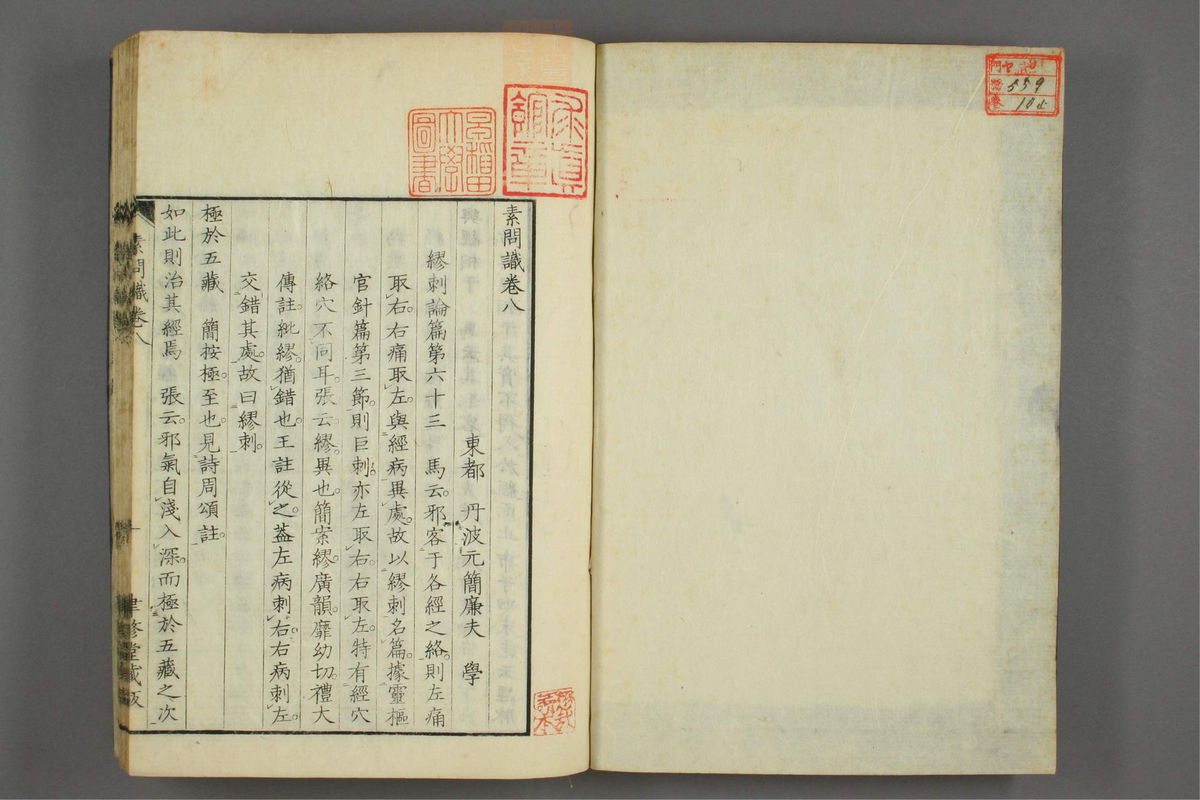 素問識卷八
東都 丹波元簡廉夫 學
繆刺論篇第六十三 馬云。邪客于各經之絡。則左痛
取右。右痛取左。與經病異處。故以繆刺名篇。據靈樞
官針篇第三節。則巨刺亦左取右。右取左。特有經穴
絡穴不同耳。張云。繆。異也。簡案繆。廣韻。靡幼切。禮大
傳註。紕繆。猶錯也。王註從之。蓋左病刺右。右病刺左。
交錯其處。故曰繆刺。
極於五藏 簡按極。至也。見詩周頌註。
如此則治其經焉 張云。邪氣自淺入深。而極於五藏之次
素問識卷八
一
聿修堂藏版
圖書
559
105